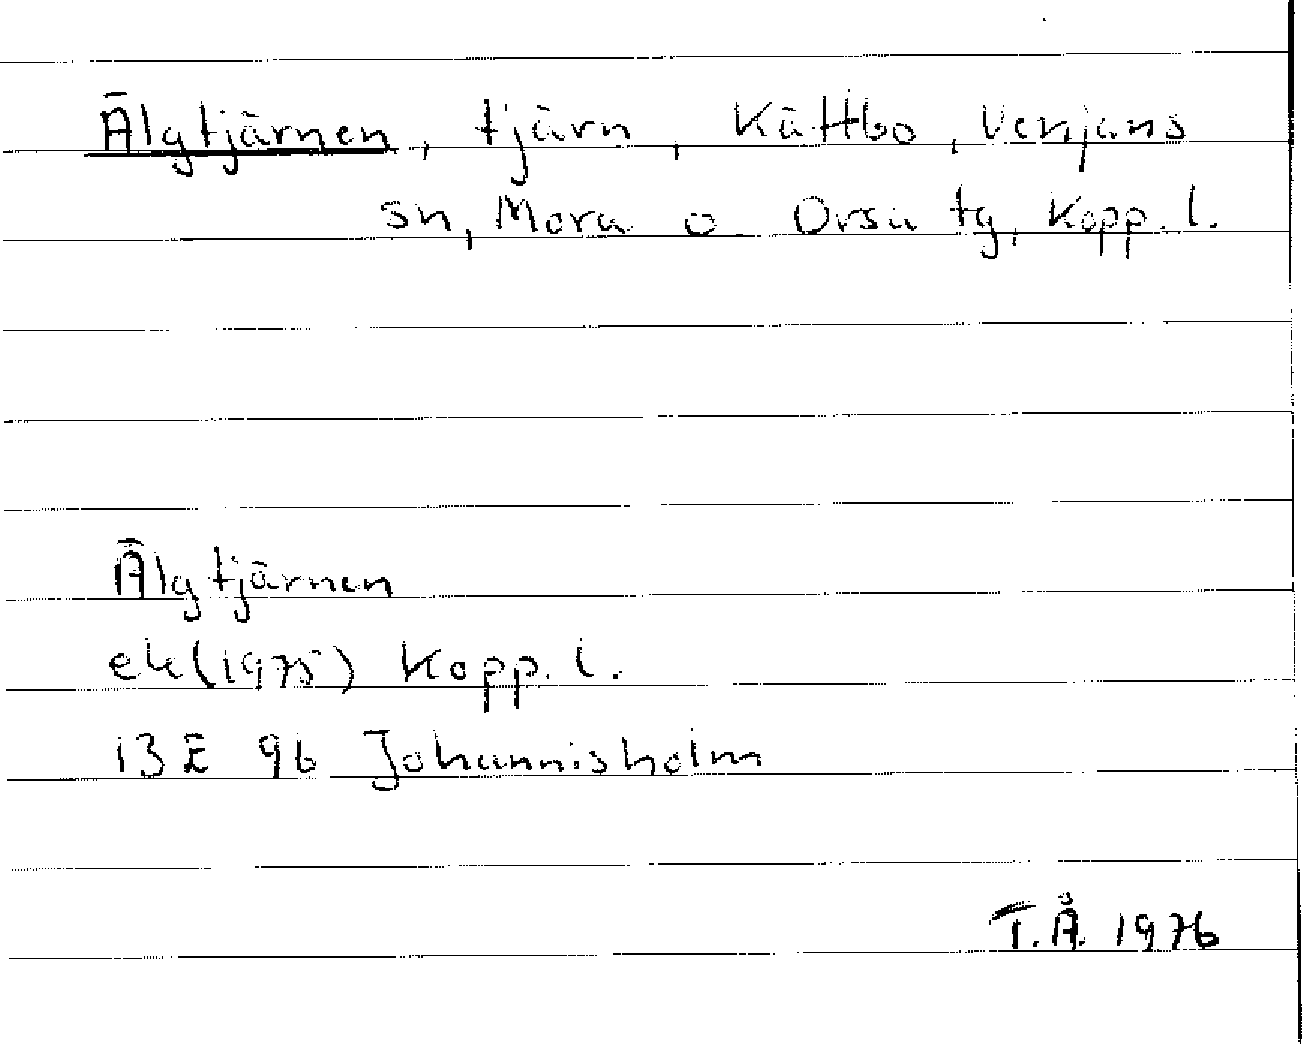 Älgtjärnen, tjärn, Kättbo, Venjans
sn, Mora o Orsa tg, Kopp. l.
Älgtjärnen
ek (1975) Kopp. l.
13 E 9b Johannisholm
T.Å. 1976